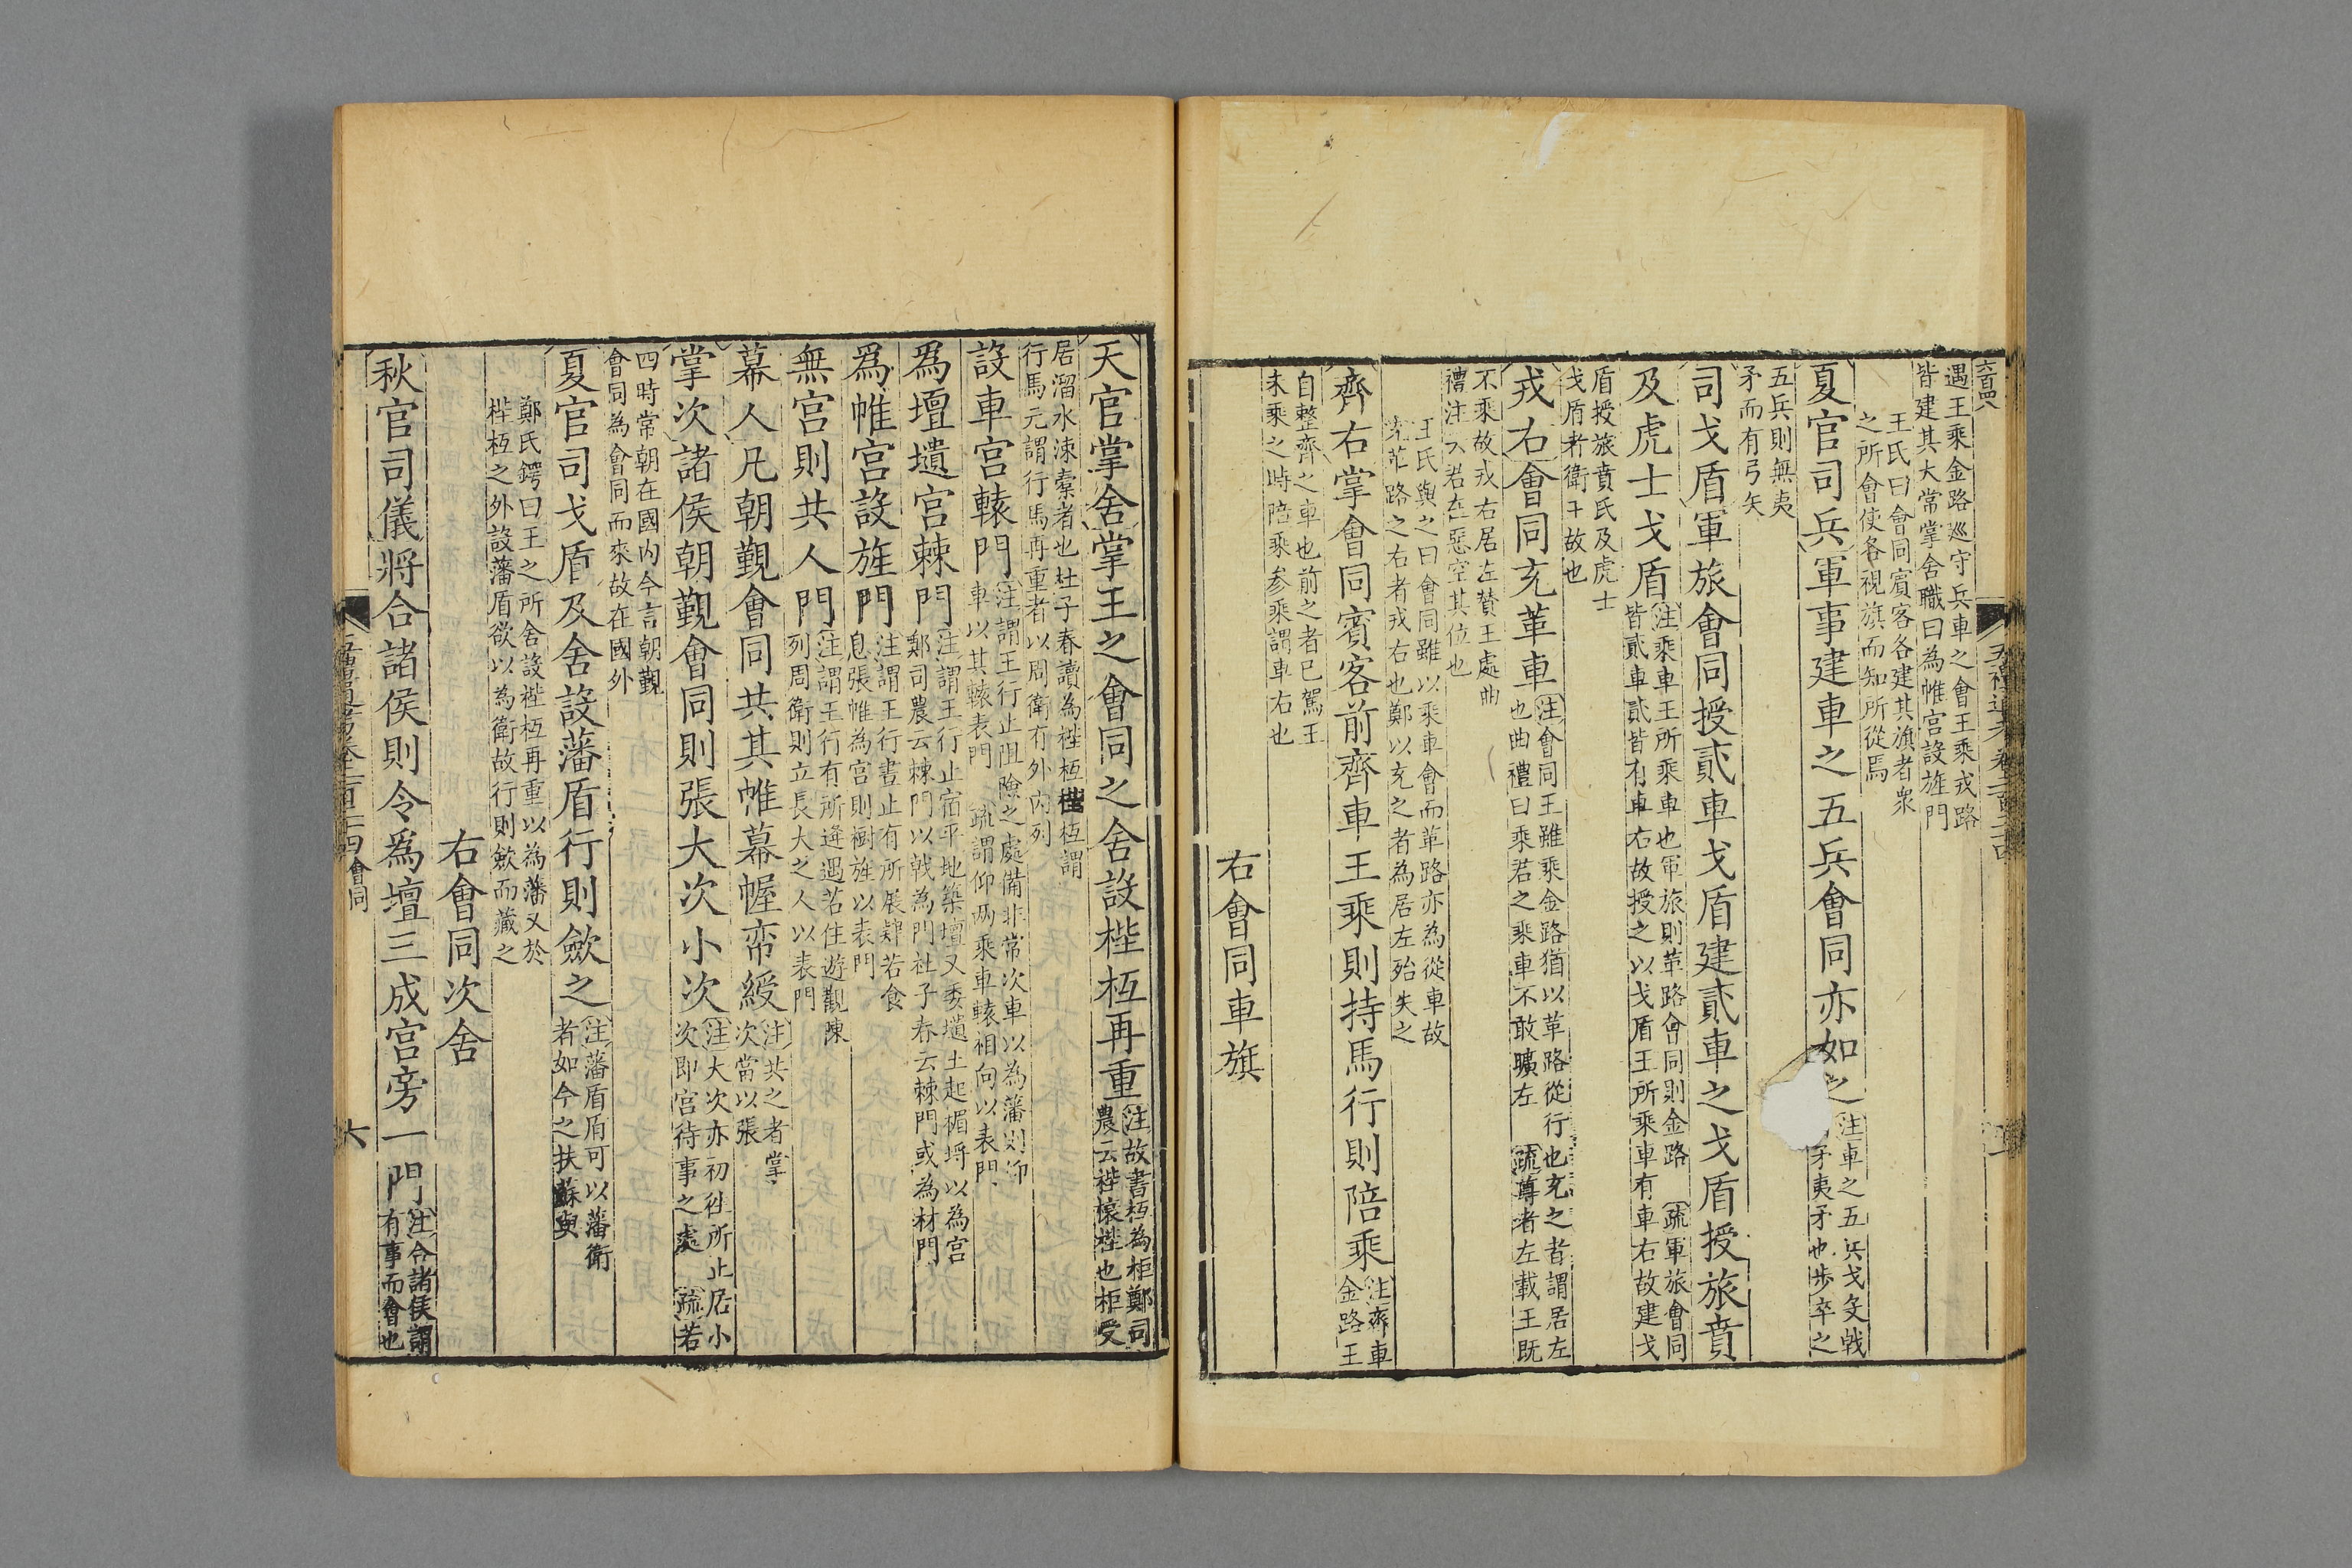 六百四八
遇王乘金路巡守兵車之會王乘戎路
皆建其大常掌舍職曰為帷宮設旌門
王氏曰會同賓客各建其旗者衆
之所會使各視旗而知所從焉
夏官司兵軍事建車之五兵會同亦如之注車之五兵戈殳戟
矛夷矛也步卒之
五兵則無夷
矛而有弓矢
司戈盾軍旅會同授貳車戈盾建貳車之戈盾授旅賁
及虎士戈盾注乘車王所乘車也軍旅則革路會同則金路 疏軍旅會同
皆貳車貳皆有車右故授之以戈盾王所乘車有車右故建戈
盾授旅賁氏及虎士
戈盾者衛王故也
戎右會同充革車注會同王雖乘金路猶以革路從行也充之者謂居左
也曲禮曰乘君之乘車不敢曠左 疏尊者左載王既
不乘故戎右居左賛王處曲
禮注云君在惡空其位也
王氏與之曰會同雖以乘車會而革路亦為從車故
充革路之右者戎右也鄭以充之者為居左殆失之
齊右掌會同賓客前齊車王乘則持馬行則陪乘注齊車
金路王
自整齊之車也前之者已駕王
未乘之時陪乘參乘謂車右也
右會同車旗
天官掌舍掌王之會同之舍設梐枑再重注故書枑為柜鄭司
農云梐榱梐也柜受
居溜水涑橐者也杜子春讀為梐枑梐枑謂
行馬元謂行馬再重者以周衛有外內列
設車宮轅門注謂王行止阻險之處備非常次車以為藩則仰
車以其轅表門 疏謂仰兩乘車轅相向以表門
爲壇壝宮棘門注謂王行止宿平地築壇又委壝土起堳埒以為宮
鄭司農云棘門以戟為門杜子春云棘門或為材門
爲帷宮設旌門注謂王行晝止有所展肄若食
息張帷為宮則樹旌以表門
無宮則共人門注謂王行有所逢遇若住遊觀陳
列周衛則立長大之人以表門
幕人凡朝覲會同共其帷幕幄帟綬注共之者掌
次當以張
掌次諸侯朝覲會同則張大次小次注大次亦初往所止居小
次即宮待事之處 疏若
四時常朝在國內今言朝覲
會同為會同而來故在國外
夏官司戈盾及舍設藩盾行則斂之注藩盾盾可以藩衛
者如今之扶蘇與
鄭氏鍔曰王之所舍設梐枑再重以為藩又於
梐枑之外設藩盾欲以為衛故行則斂而藏之
右會同次舍
秋官司儀將合諸侯則令爲壇三成宮旁一門注合諸侯謂
有事而會也
會同
六